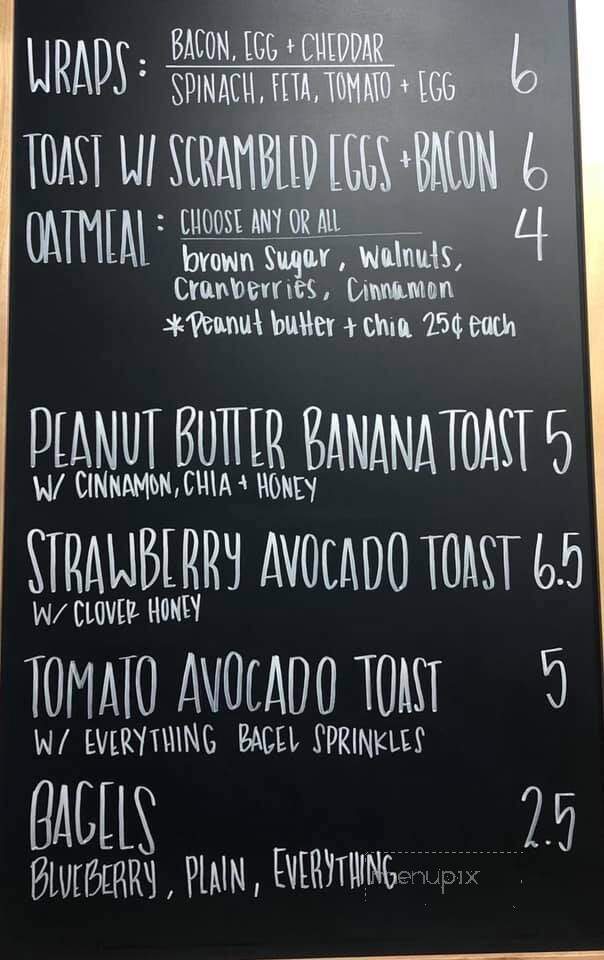 WRAPS: BACON, EGG + CHEDDAR 6
SPINACH, FETA, TOMATO + EGG
TOAST W/ SCRAMBLED EGGS + BACON 6
OATMEAL: CHOOSE ANY OR ALL 4
brown Sugar, Walnuts,
Cranberries, Cinnamon
*Peanut butter + chia 25¢ each
PEANUT BUTTER BANANA TOAST 5
W/ CINNAMON, CHIA + HONEY
STRAWBERRY AVOCADO TOAST 6.5
W/ CLOVER HONEY
TOMATO AVOCADO TOAST 5
W/ EVERYTHING BAGEL SPRINKLES
BAGELS 2.5
BLUEBERRY, PLAIN, EVERYTHING
menupix